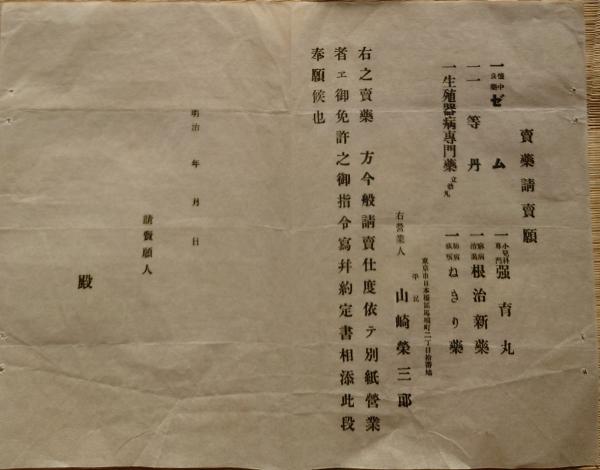 賣藥請賣願
一 懷中良藥 ゼム
一 小兒科專門 强育丸
一 一等丹
一 淋病消渴 根治新藥
一 生殖器病專門藥 立効丸
一 ねきり藥
東京市日本橋區馬喰町二丁目拾番地
平民
右營業人 山崎榮三郎
右之賣藥 方今般請賣仕度依テ別紙營業
者ヱ御免許之御指令寫幷約定書相添此段
奉願候也
明治 年 月 日
請賣願人
殿